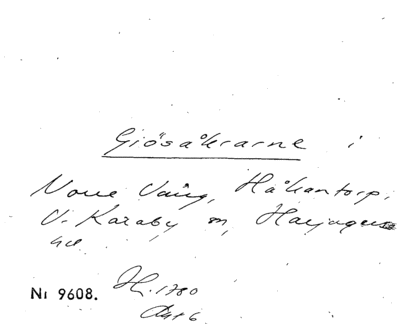 Giösåkrarne i
Norre Vång, Håkantorp,
V. Karaby m, Harjagers
hd
Nr 9608. H. 1780
Akt 6